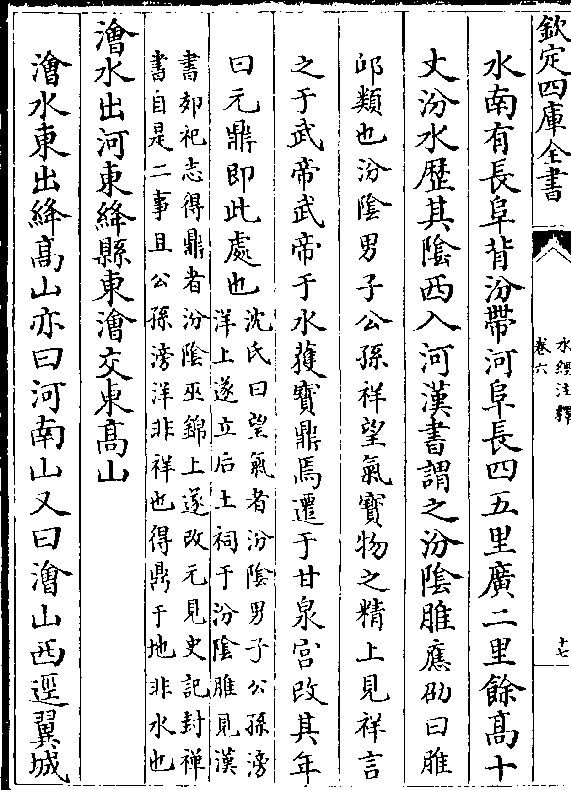 欽定四庫全書
水經注釋
卷六
十七
水南有長阜背汾帶河阜長四五里廣二里餘高十
丈汾水歴其隂西入河漢書謂之汾隂脽應劭曰脽
邱類也汾隂男子公孫祥望氣寳物之精上見祥言
之于武帝武帝于水獲寳鼎焉遷于甘泉宫改其年
曰元鼎即此處也沈氏曰望氣者汾隂男子公孫滂
洋上遂立后土祠于汾隂脽見漢
書郊祀志得鼎者汾隂巫錦上遂改元見史記封禪
書自是二事且公孫滂洋非祥也得鼎于地非水也
澮水出河東絳縣東澮交東髙山
澮水東出絳髙山亦曰河南山又曰澮山西逕翼城